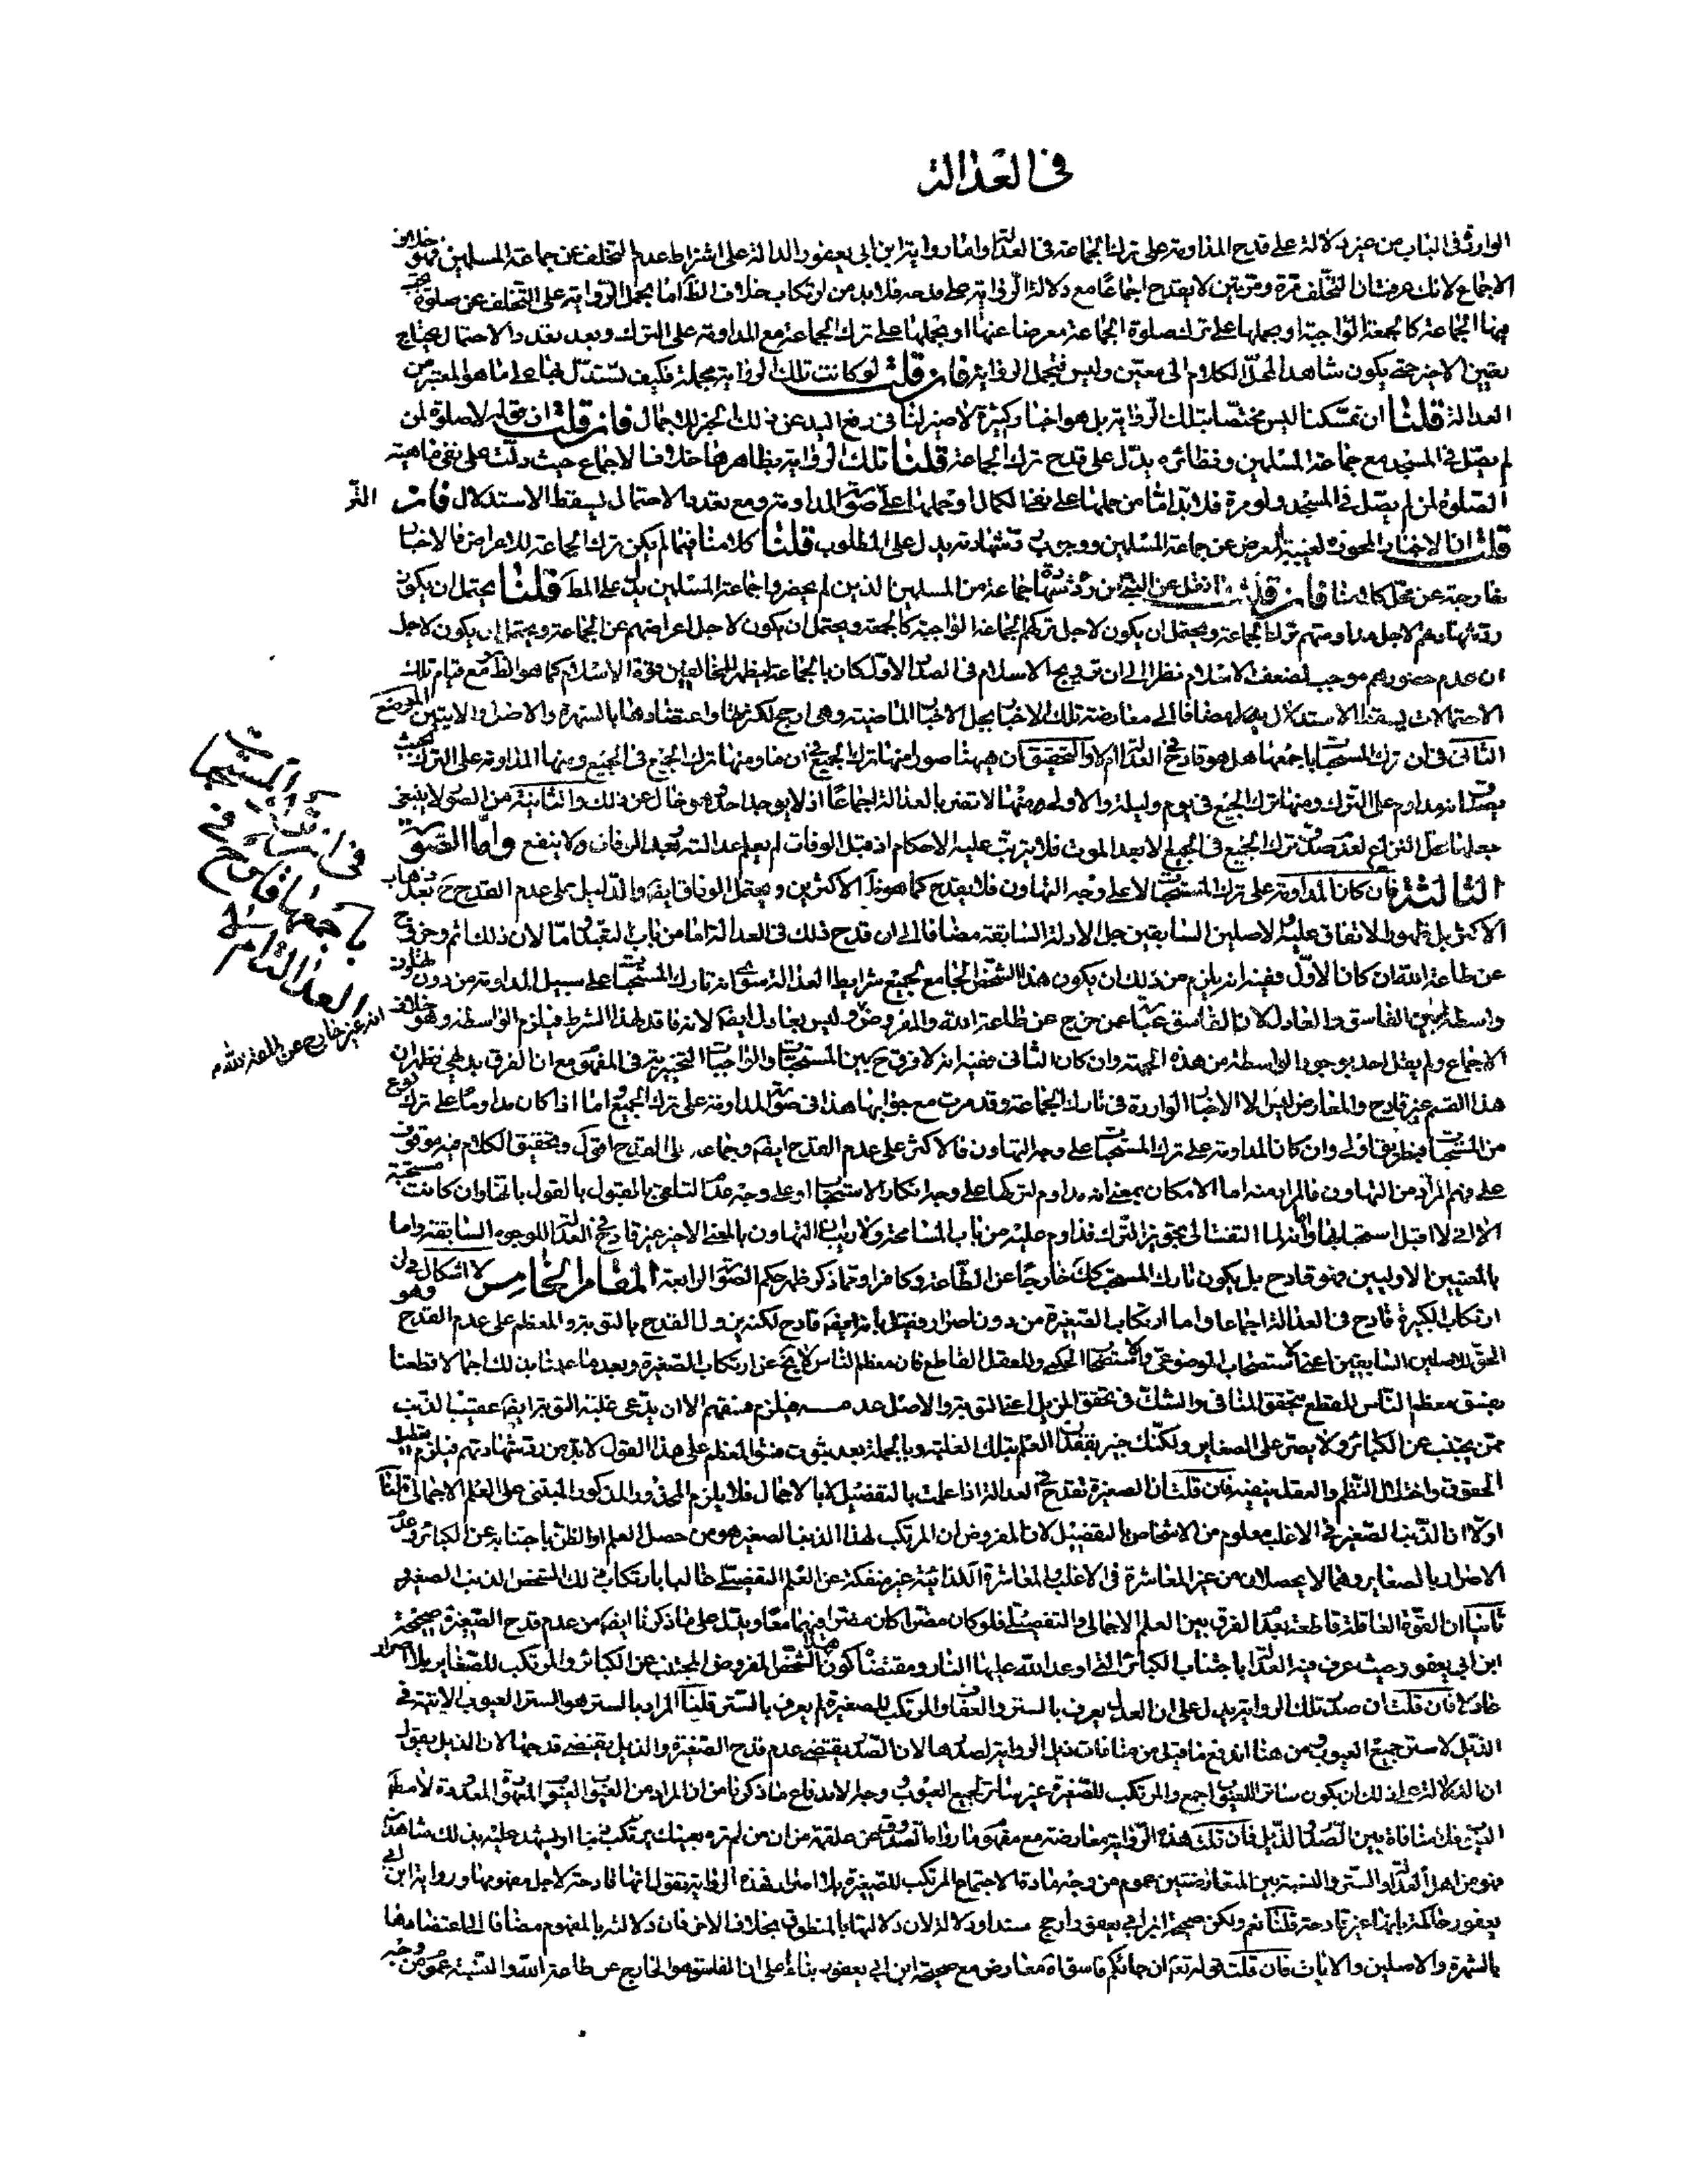 في العدالة
الوارد في الباب من غير دلالة على قدح المداومة على ترك الجماعة في العدالة واما رواية ابن ابي يعفور الدالة على اشتراط عدم التخلف عن جماعة المسلمين فهو خلاف
الاجماع لانك عرفت ان التخلف مرة ومرتين لا يقدح اجماعا مع دلالة الرواية على قدحه فلا بد من ارتكاب خلاف الظ اما بحمل الرواية على التخلف عن صلوة يجب
فيها الجماعة كالجمعة الواجبة او بحملها على ترك صلوة الجماعة معرضا عنها او بحملها على ترك الجماعة مع المداومة على الترك وبعد تعدد الاحتمال يحتاج
تعيين الاخير حتى يكون شاهدا لمحل الكلام الى معين وليس فتجمل الرواية فان قلت لو كانت تلك الرواية مجملة فكيف تستدل بها على ما هو المعتبر من
العدالة قلنا ان تمسكنا ليس مختصا بتلك الرواية بل هو اخبار كثيرة لا ضير لنا في رفع اليد عن ذلك الخبر للاجمال فان قلت ان قوله لا صلوة لمن
لم يصل في المسجد مع جماعة المسلمين ونظائره يدل على قدح ترك الجماعة قلنا تلك الرواية بظاهرها خلاف الاجماع حيث دلت على نفي ماهية
الصلوة لمن لم يصل في المسجد ولو مرة فلا بد اما من حملها على نفي الكمال او حملها على صورة المداومة ومع تعدد الاحتمال يسقط الاستدلال فان
قلت ان الاخبار المجوزة لغيبة المعرض عن جماعة المسلمين ووجوب رد شهادته يدل على المطلوب قلنا كلامنا فيما لم يكن ترك الجماعة للاعراض فالاخبار
خارجة عن محل كلامنا فان قلت ما نقل عن النبي من رد شهادة جماعة من المسلمين الذين لم يحضروا جماعة المسلمين يدل على المط قلنا يحتمل ان يكون
رد شهادتهم لاجل مداومتهم ترك الجماعة ويحتمل ان يكون لاجل تركهم الجماعة الواجبة كالجمعة ويحتمل ان يكون لاجل اعراضهم عن الجماعة ويحتمل ان يكون لاجل
ان عدم حضورهم موجب لضعف الاسلام نظرا الى ان ترويج الاسلام في الصدر الاول كان بالجماعة ليظهر للمخالفين قوة الاسلام كما هو الظ ومع قيام تلك
الاحتمالات يسقط الاستدلال بها مضافا الى معارضة تلك الاخبار بجل الاخبار الماضية وهي ارجح لكثرتها واعتضادها بالشهرة والاصل والايتين الموضع
الثاني في ان ترك المستحبات باجمعها هل هو قادح في العدالة ام لا والتحقيق ان ههنا صورا منها ترك الجميع في ان ما ومنها ترك الجميع في الجميع ومنها المداومة على الترك بحيث
يصدق انه مداوم على الترك ومنها ترك الجميع في يوم وليلة والاولى منها لا تضر بالعدالة اجماعا اذ لا يوجد احد هو خال عن ذلك والثانية من الصور لا ينبغي
جعلها محل النزاع لعدم صدق ترك الجميع في الجميع الا بعد الموت فلا يترتب عليه الاحكام اذ قبل الوفات لم يعلم عدالته وبعد الوفات ولا ينفع واما الصورة
الثالثة فان كان المداومة على ترك المستحبات لا على وجه التهاون فلا يقدح كما هو ظ الاكثرين ويحتمل الوفاق ايضا والدليل على عدم القدح ح بعد ذهاب
الاكثر بل ظهور الاتفاق عليه الاصلين السابقين جل الادلة السابقة مضافا الى ان قدح ذلك في العدالة اما من باب التعبد واما لان ذلك اثم وخروج
عن طاعة الله ان كان الاول ففيه انه يلزم من ذلك ان يكون هذا الشخص الجامع لجميع شرايط العدالة سوى انه تارك المستحبات على سبيل المداومة من دون تهاون
واسطة بين الفاسق والعادل لان الفاسق عبارة عمن خرج عن طاعة الله والمفروض وليس بعادل ايضا لانه فاقد لهذا الشرط فيلزم الواسطة وهو خلاف
الاجماع ولم يقل احد بوجود الواسطة من هذه الجهة وان كان الثاني ففيه انه لا فرق ح بين المستحبات والواجبات التخييرية في المفهوم مع ان الفرق بديهي فظهر ان
هذا القسم غير قادح والمعارض ليس الا الاخبار الواردة في تارك الجماعة وقد مرت مع جوابها هذا في صورة المداومة على ترك الجميع اما اذا كان مداوما على ترك نوع
من المستحبات فبطريق اولى وان كان المداومة على ترك المستحبات على وجه التهاون فالاكثر على عدم القدح ايضا وجماعة على القدح اقول وتحقيق الكلام فيه موقوف
على فهم المراد من التهاون فالمراد منه اما الامكان بمعنى انه مداوم لتركها على وجه انكار الاستحباب او على وجه عدم التلقي بالقبول بالقول بانها وان كانت مستحبة
الا اني لا اقبل استحبابها وانه لما التفت الى تجويز الترك فداوم عليه من باب المسامحة ولا ريب ان التهاون بالمعنى الاخير غير قادح في العدالة للوجوه السابقة واما
بالمعنيين الاوليين فهو قادح بل يكون تارك المستحب كك خارجا عن الطاعة وكافرا ومما ذكر ظهر حكم الصورة الرابعة المقام الخامس لا اشكال في ان
ارتكاب الكبيرة قادح في العدالة اجماعا واما ارتكاب الصغيرة من دون اصرار فقيل بانه ايضا قادح لكنه يزول القدح بالتوبة والمعظم على عدم القدح وهو
الحق للاصلين السابقين اعني الاستصحاب الموضوعي والاستصحاب الحكمي وللعقل القاطع فان معظم الناس لا يخ عن ارتكاب الصغيرة وبعد ما علمنا بذلك اجمالا قطعنا
بفسق معظم الناس للقطع بتحقق المنافي والشك في تحقق المزيل اعني التوبة والاصل عدمه فيلزم فسقهم الا ان يدعى غلبة التوبة ايضا عقيب الذنب
ممن يجتنب عن الكبائر ولا يصر على الصغاير ولكنك خبير بفقد العلم بتلك الغلبة وبالجملة بعد ثبوت فسق المعظم على هذا القول لا بد من رد شهادتهم فيلزم تعطيل
الحقوق واختلال النظم والعقل ينفيه فان قلت ان الصغيرة تقدح في العدالة اذا علمت بالتفصيل لا بالاجمال فلا يلزم المحذور المذكور المبتني على العلم الاجمالي قلنا
اولا ان الذنب الصغير في الاغلب معلوم من الاشخاص بالتفصيل لان المفروض ان المرتكب لهذا الذنب الصغير هو من حصل العلم او الظن باجتنابه عن الكبائر وعدم
الاصرار بالصغاير وهما لا يحصلان من غير المعاشرة في الاغلب والمعاشرة الكذائية غير منفكة عن العلم التفصيلي غالبا بارتكاب ذلك الشخص الذنب الصغير
ثانيا ان القوة العاقلة قاطعة بعدم الفرق بين العلم الاجمالي والتفصيلي فلو كان مضرا كان مضرا فيهما معا ويدل على ما ذكرنا ايضا من عدم قدح الصغيرة صحيحة
ابن ابي يعفور حيث عرف فيه العدالة باجتناب الكبائر التي اوعد الله عليها النار ومقتضاه كون هذا الشخص المفروض المجتنب عن الكبائر والمرتكب للصغاير بلا اصرار
عادلا فان قلت ان صدر تلك الرواية يدل على ان العدل يعرف بالستر والعفاف والمرتكب للصغيرة لم يعرف بالستر قلنا المراد بالستر هو الستر العيوب الاتية في
الذيل لا ستر جميع العيوب ومن هنا اندفع ما قيل من منافات ذيل الرواية لصدرها لان الصدر يقتضي عدم قدح الصغيرة والذيل يقتضي قدحها لان الذيل يقول
ان الدلالة على ذلك ان يكون ساترا للعيوب اجمع والمرتكب للصغيرة غير ساتر لجميع العيوب وجه الاندفاع ما ذكرنا من ان المراد من العيوب العيوب المعهودة المعدودة لا مطلق
العيوب فلا منافاة بين الصدر والذيل فان قلت هذه الرواية معارضة مع مفهوم ما رواه الصدوق عن علقمة من ان من لم تره بعينك يرتكب ذنبا او لم يشهد عليه بذلك شاهدان
فهو من اهل العدالة والستر والنسبة بين المتعارضتين عموم من وجه مادة الاجتماع المرتكب للصغيرة بلا اصرار فهذه الرواية تقول انها قادحة لاجل مفهومها ورواية ابن ابي
يعفور حاكمة بانها غير قادحة قلنا نعم ولكن صحيحة ابن ابي يعفور ارجح سندا ودلالة لان دلالتها بالمنطوق بخلاف الاخر فان دلالته بالمفهوم مضافا الى اعتضادها
بالشهرة والاصلين والايات فان قلت قوله تعالى ان جائكم فاسق اه معارض مع صحيحة ابن ابي يعفور بناء على ان الفاسق هو الخارج عن طاعة الله والنسبة عموم من وجه
في ان ترك المستحبات
باجمعها قادح في
العدالة ام لا
انه غير خارج عن طاعة الله م